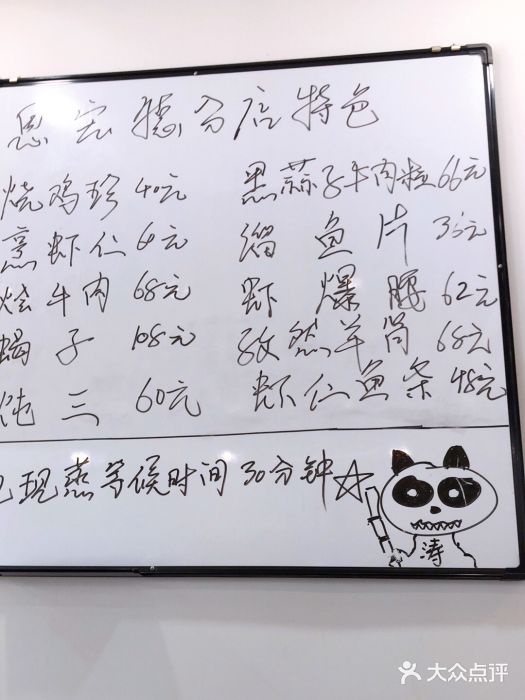 恩宏穗分店特色
烧鸡珍 40元 黑蒜子牛肉粒 66元
烹虾仁 元 溜鱼片 35元
烩牛肉 68元 虾爆腰 62元
蝎子 108元 孜然羊蒟 68元
炖三 60元 虾仁鱼条 48元
现蒸等候时间 30分钟☆
涛
大众点评